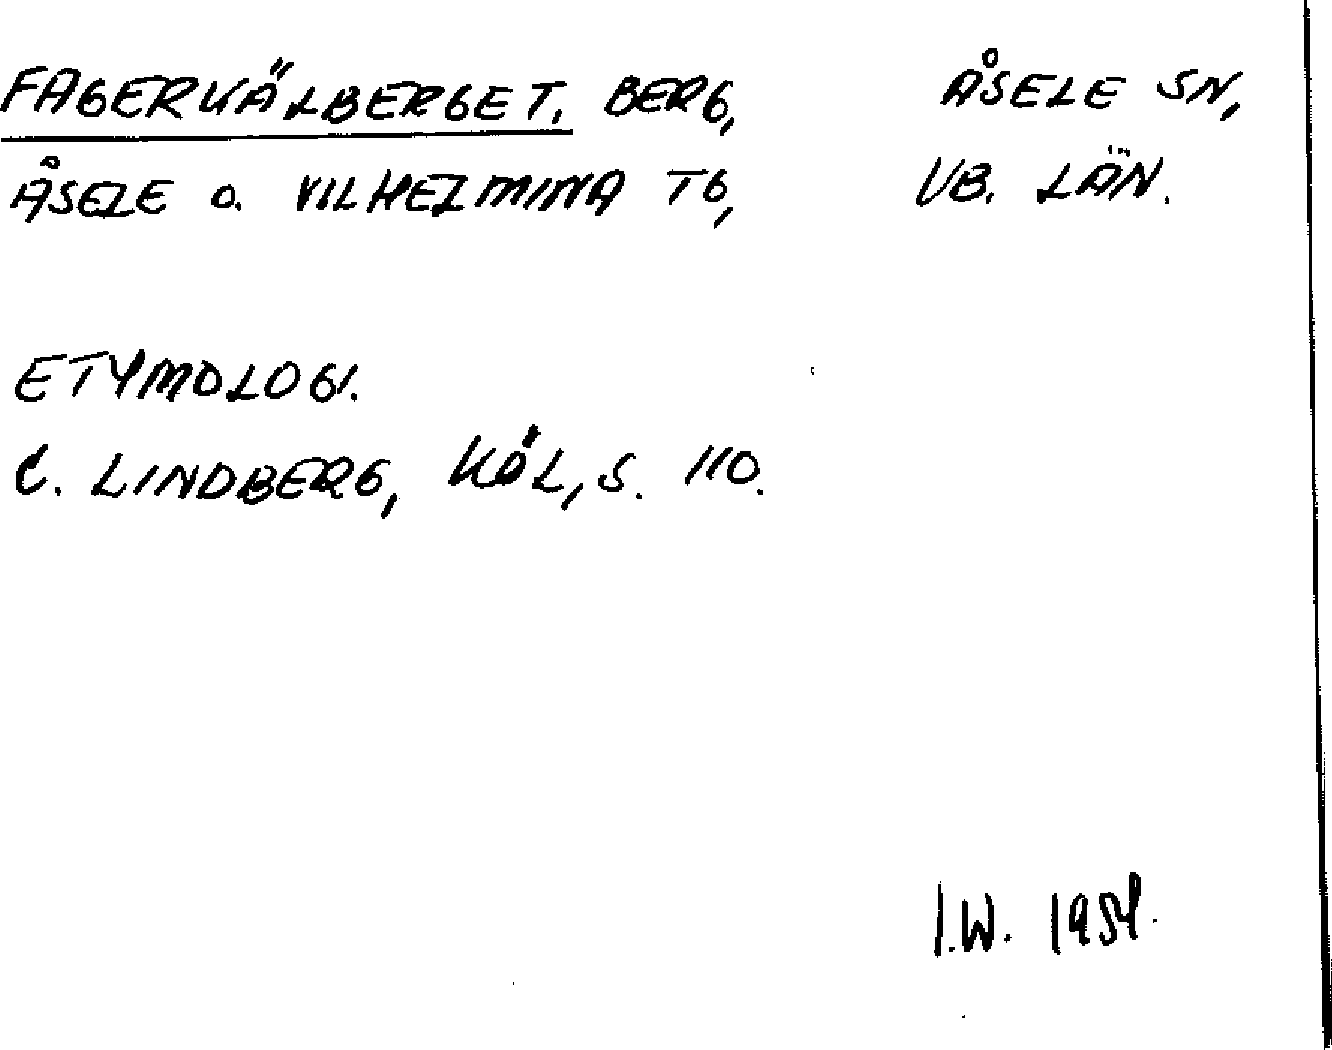 FAGERKÄLBERGET. BERG, ÅSELE SN,
ÅSELE O. VILHELMINA TG, VB. LÄN.
ETYMOLOGI.
C. LINDBERG, KÖL, S. 110.
I.W. 1954.